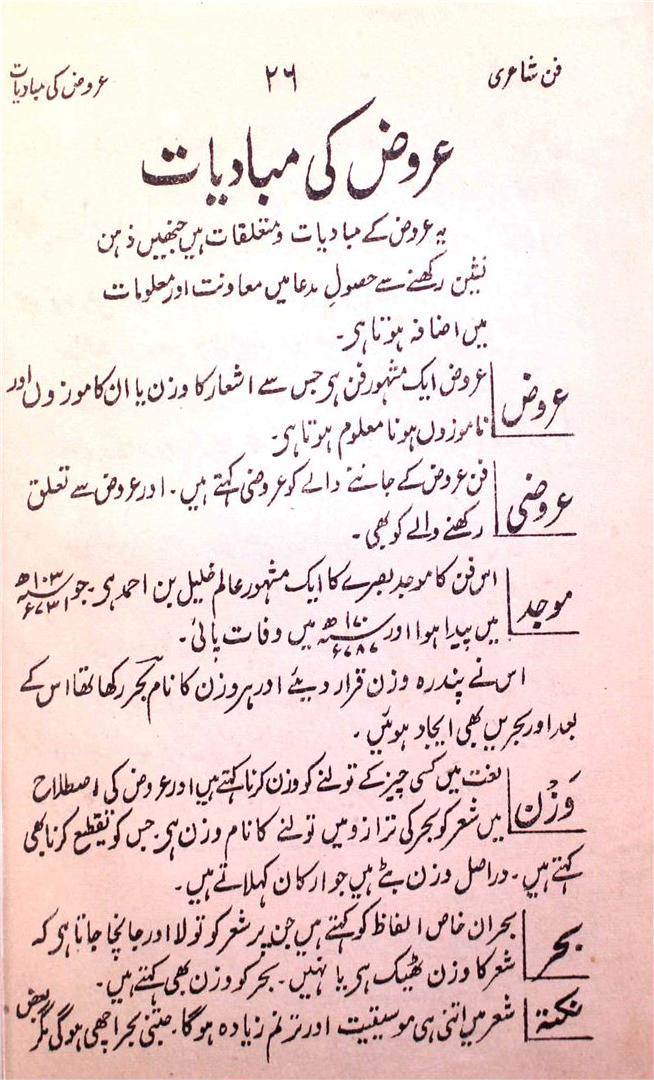 فن شاعری ۲۶ عروض کی مبادیات
عروض کی مبادیات
یہ عروض کے مبادیات و متعلقات ہیں جنھیں ذہن
نشین رکھنے سے حصولِ مدعا میں معاونت اور معلومات
میں اضافہ ہوتا ہی۔
عروض عروض ایک مشہور فن ہی جس سے اشعار کا وزن یا ان کا موزوں اور
ناموزوں ہونا معلوم ہوتا ہی۔
عروضی فن عروض کے جاننے والے کو عروضی کہتے ہیں۔ اور عروض سے تعلق
رکھنے والے کو بھی۔
موجد اس فن کا موجد بصرے کا ایک مشہور عالم خلیل بن احمد ہی۔ جو ۱۰۳ھ ۷۳۱ء
میں پیدا ہوا اور ۱۷۰ھ ۷۸۷ء میں وفات پائی۔
اس نے پندرہ وزن قرار دیئے اور ہر وزن کا نام بحر رکھا تھا اس کے
بعد اور بحریں بھی ایجاد ہوئیں۔
وَزْن لغت میں کسی چیز کے تولنے کو وزن کرنا کہتے ہیں اور عروض کی اصطلاح
میں شعر کو بحر کی ترازو میں تولنے کا نام وزن ہی۔ جس کو تقطیع کرنا بھی
کہتے ہیں۔ دراصل وزن بٹے ہیں جو ارکان کہلاتے ہیں۔
بحر بحر ان خاص الفاظ کو کہتے ہیں جن پر شعر کو تولا اور جانچا جاتا ہی کہ
شعر کا وزن ٹھیک ہی یا نہیں۔ بحر کو وزن بھی کہتے ہیں۔
نکتہ شعر میں اتنی ہی موسیقیت اور ترنم زیادہ ہوگا۔ جتنی بحر اچھی ہوگی مگر بعض